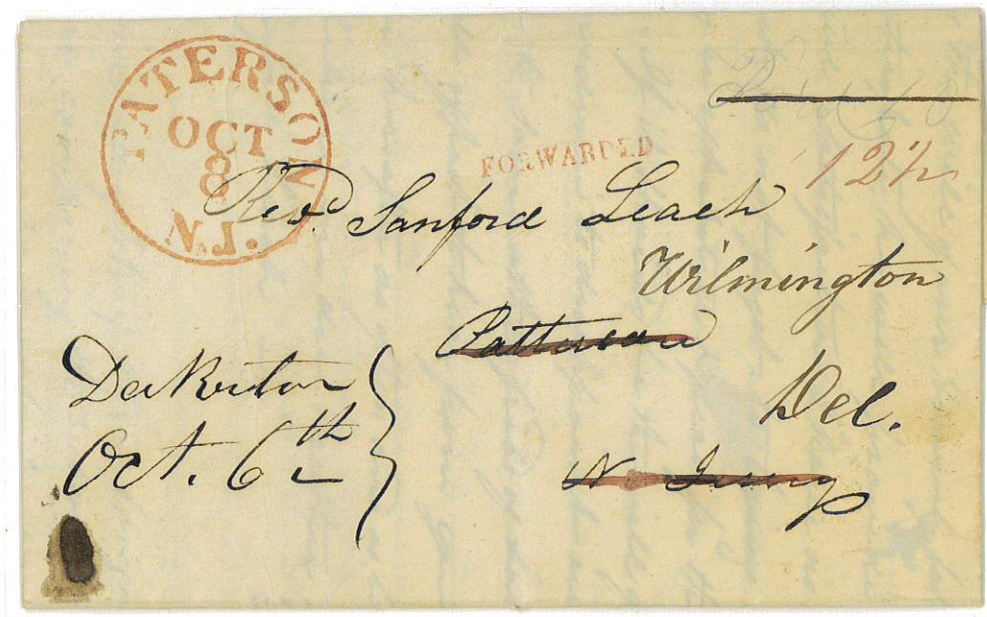 PATERSON
OCT
8
N.J.
FORWARDED
12½
Revd. Sanford Leach
Wilmington
Patterson
Del.
N Jersey
Deckertown
Oct. 6th